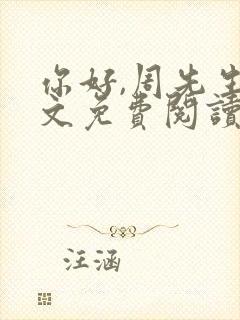 你好,周先生
文免費閱讀
汪涵